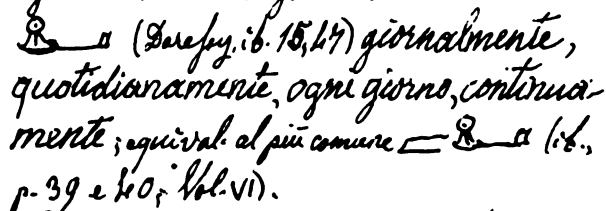 (Daressy, ib. 15,47) giornalmente,
quotidianamente, ogni giorno, continua-
mente; equival. al più comune (ib.,
p. 39 e 40, Vol. VI).